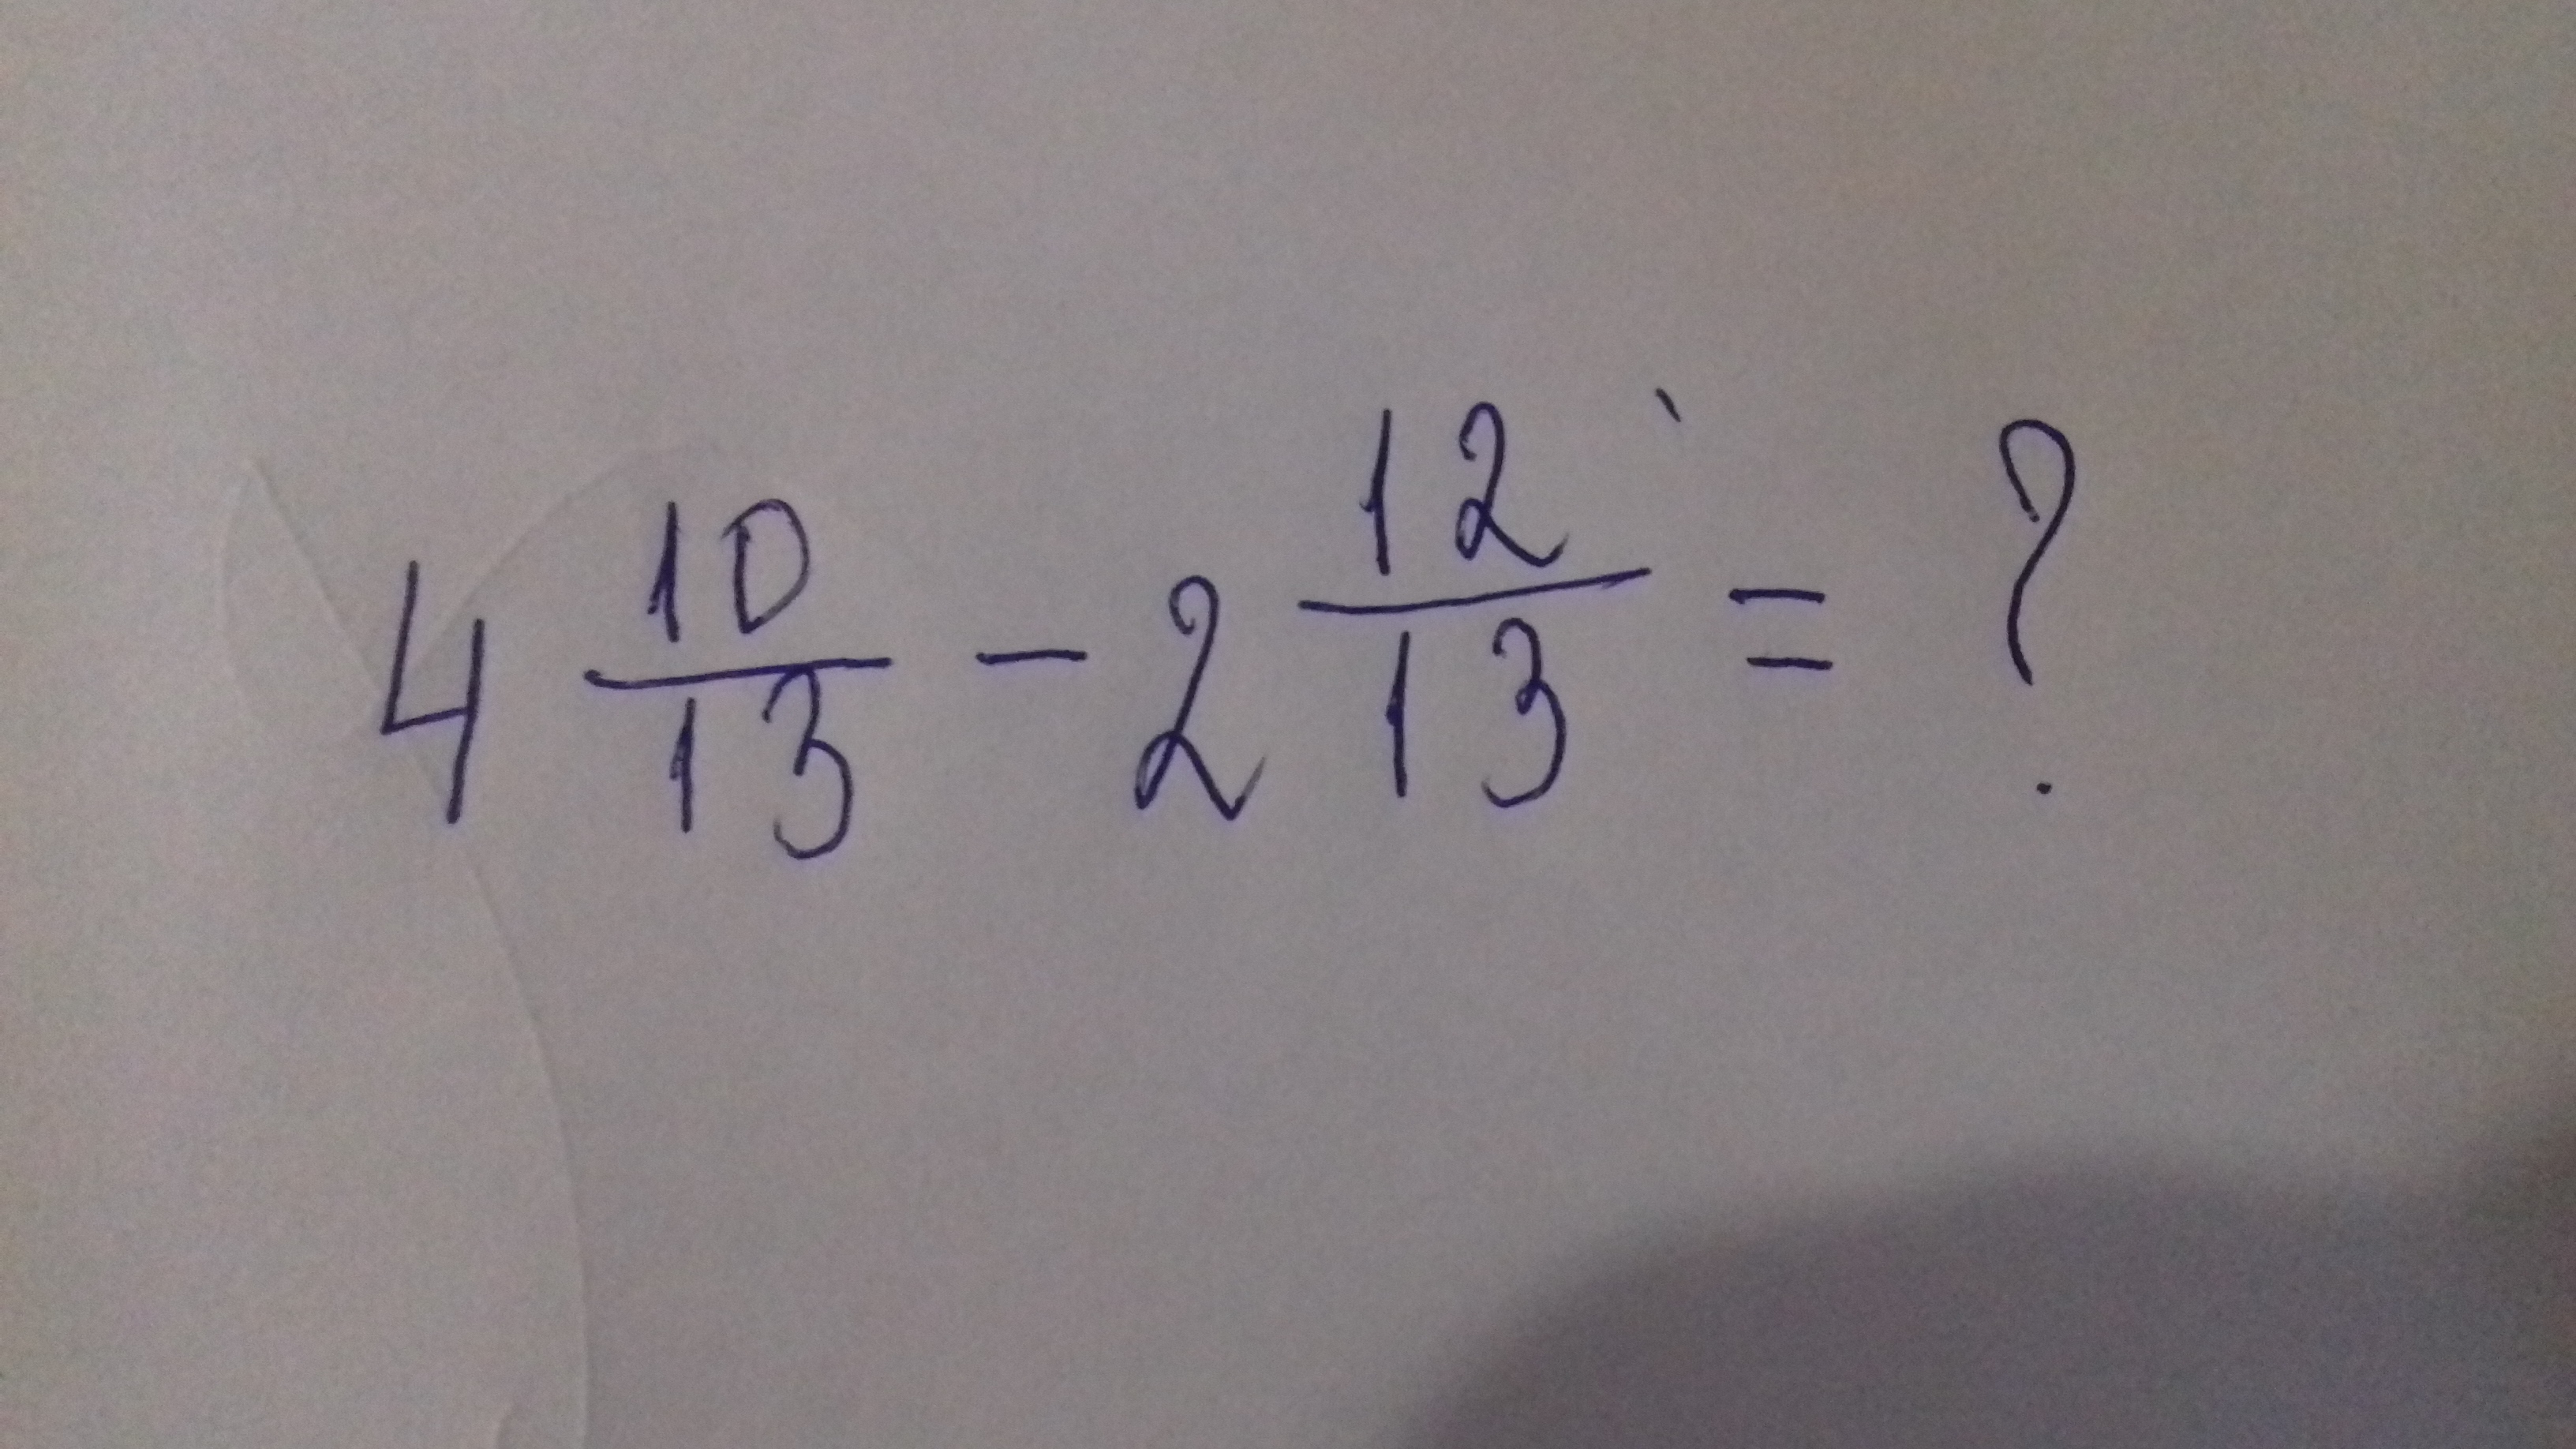 4 10/13 - 2 12/13 = ?